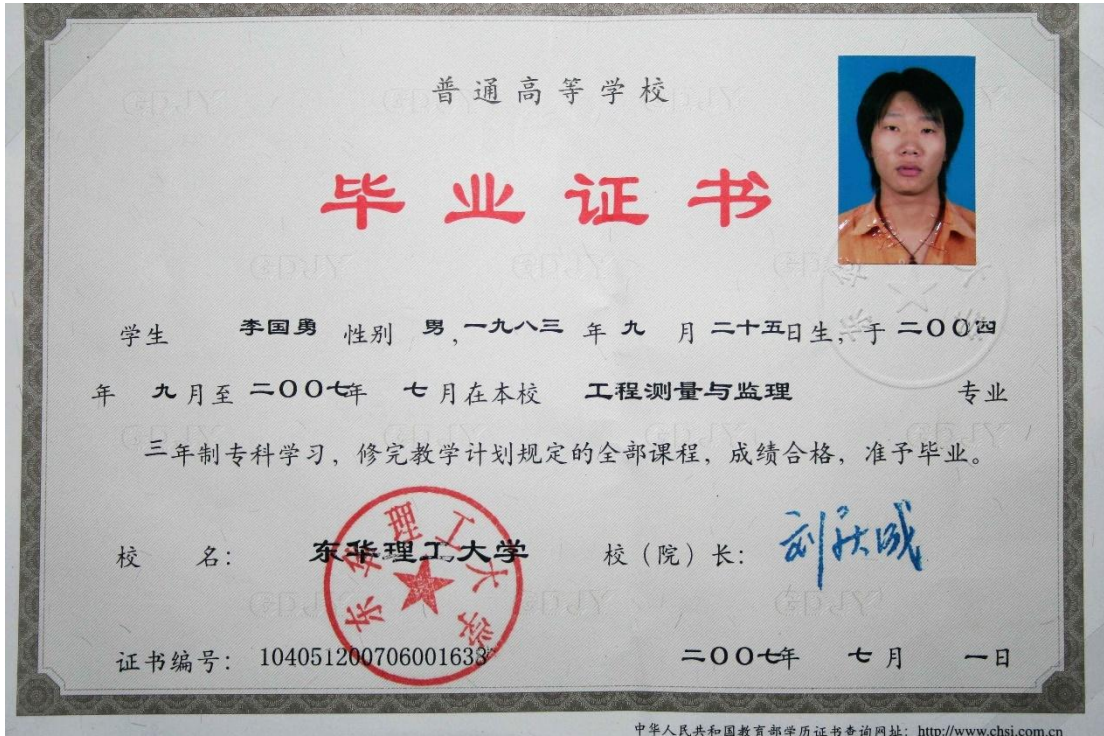 普通高等学校
毕业证书
学生 李国勇 性别 男,一九八三 年 九 月 二十五日生,于 二〇〇四
年 九月至 二〇〇七年 七月在本校 工程测量与监理 专业
三年制专科学习,修完教学计划规定的全部课程,成绩合格,准予毕业。
校 名: 东华理工大学 校(院)长:
东华理工大学
证书编号: 104051200706001638 二〇〇七年 七月 一日
中华人民共和国教育部学历证书查询网址: http://www.chsi.com.cn